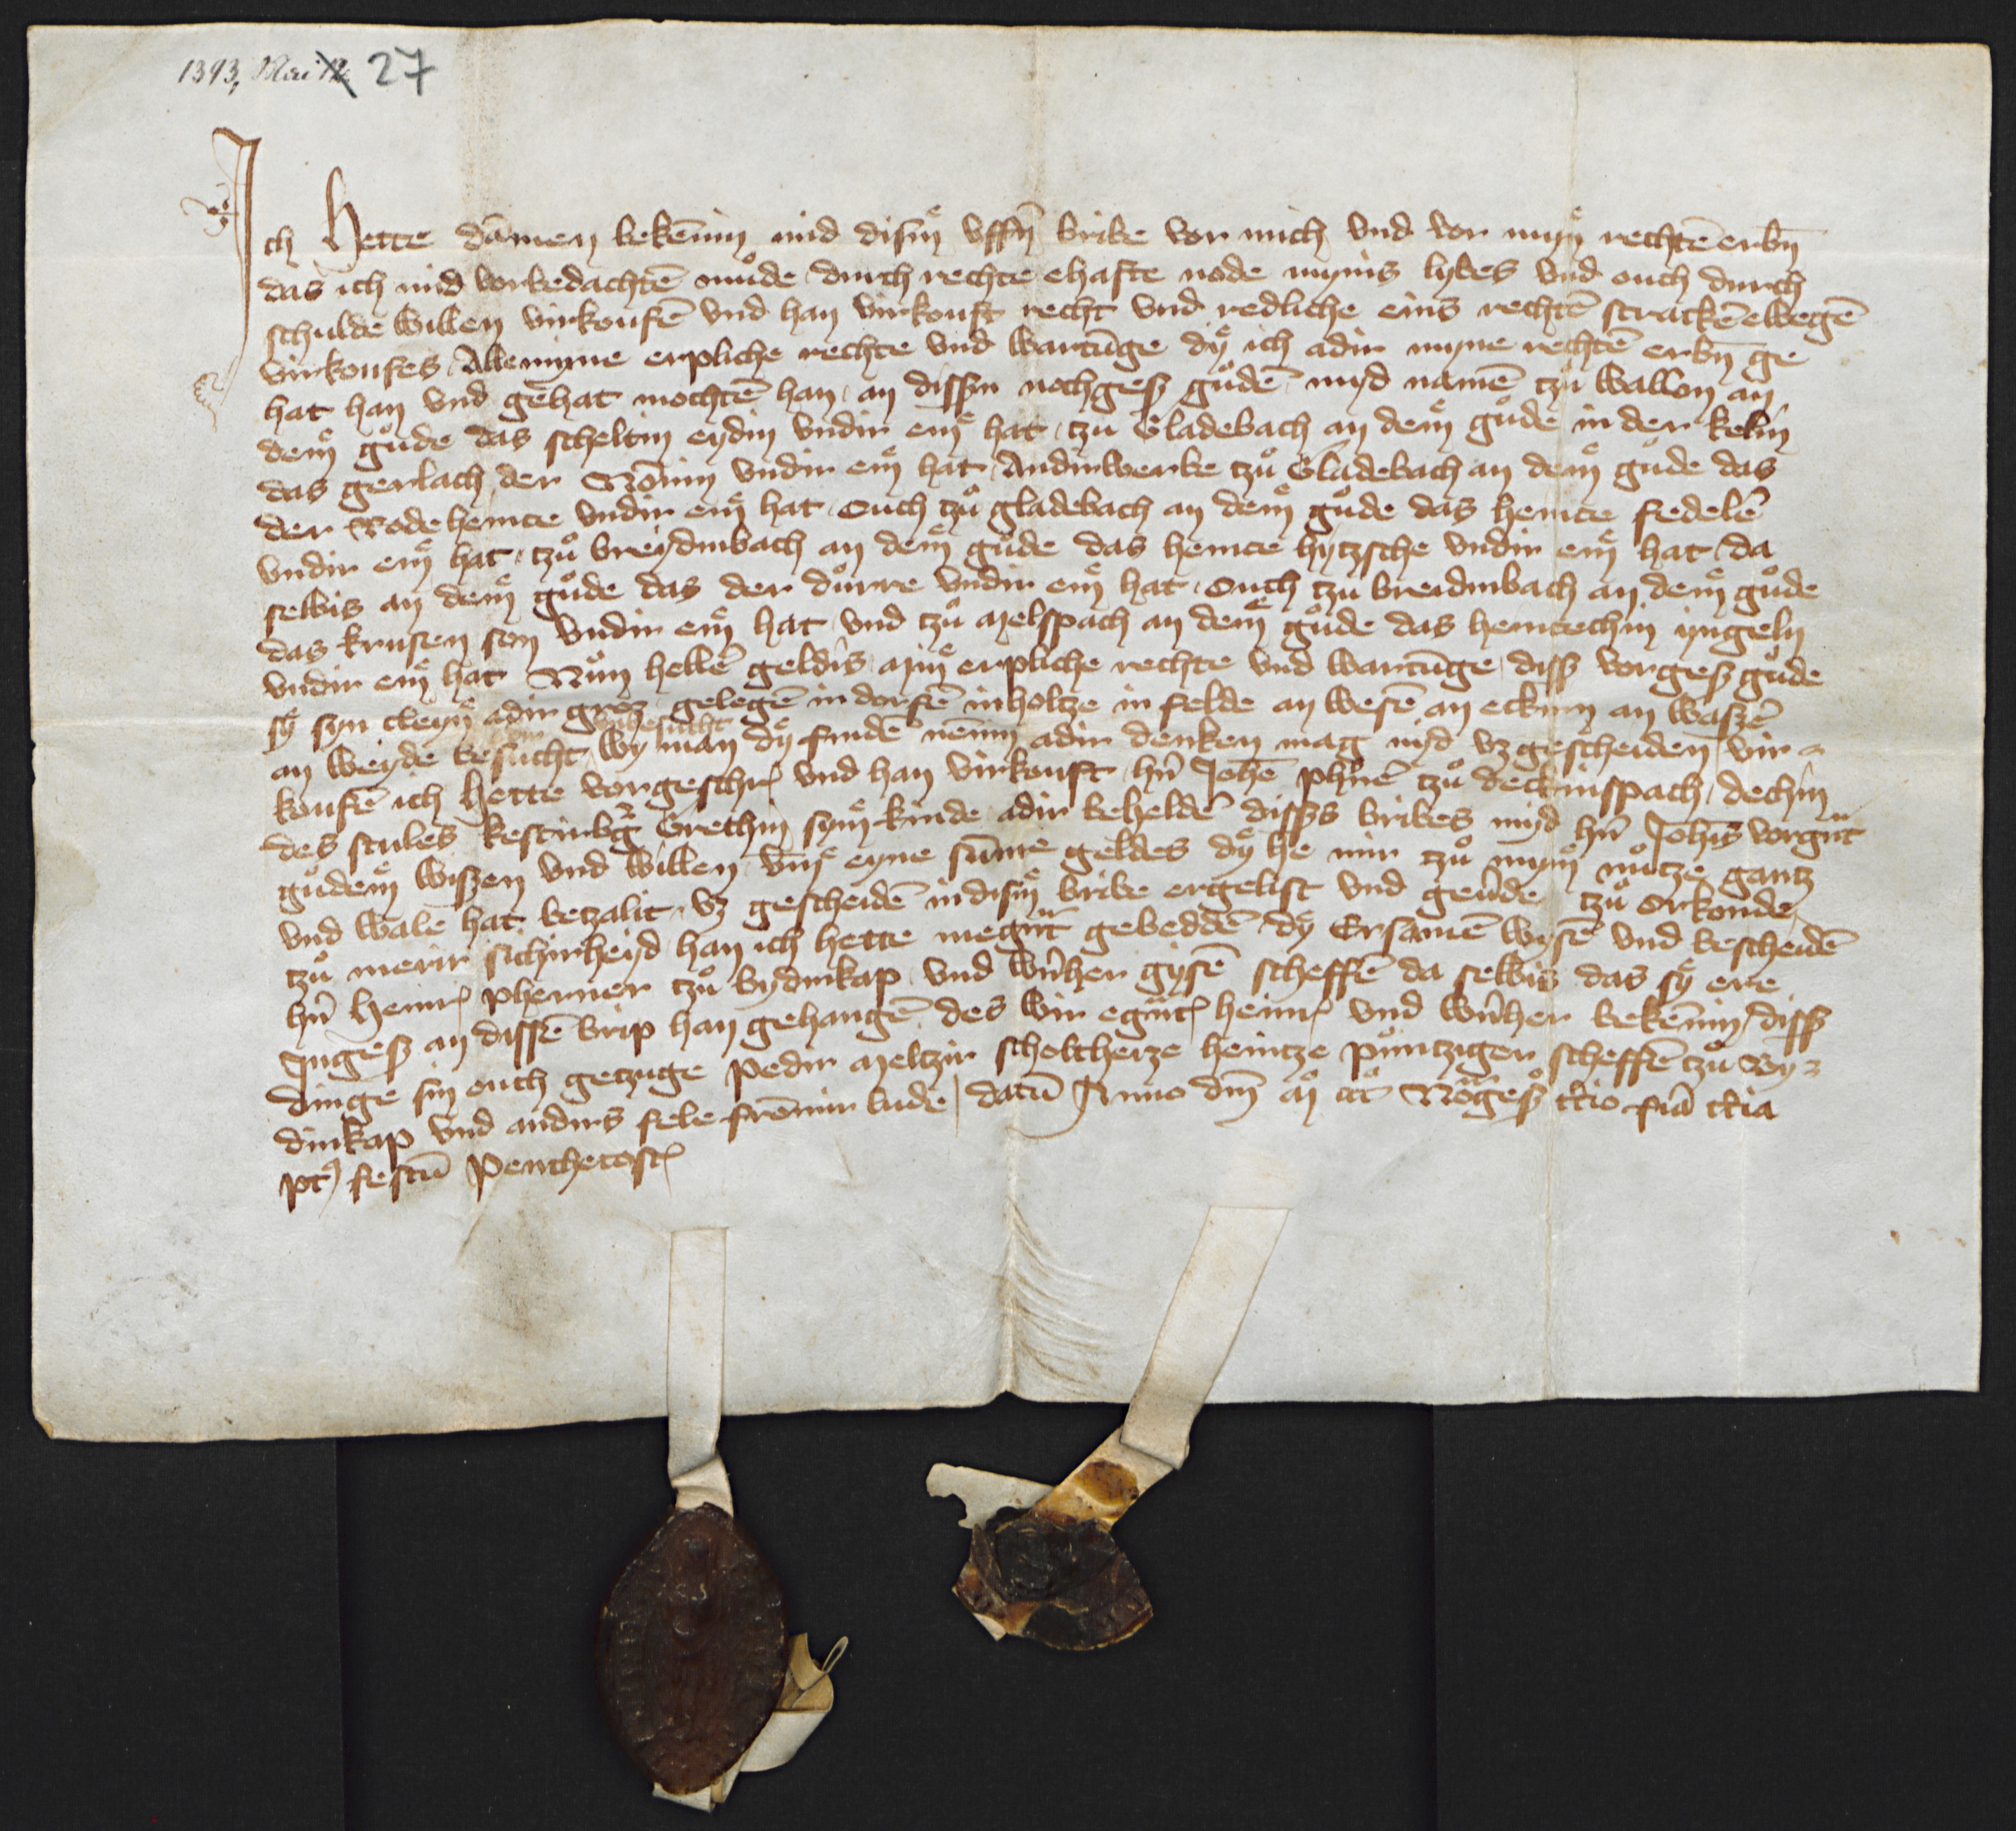 1393, Mai 27
Ich Hette dāmen bekēnin mid dism̄ uffn̄ bribe vor mich und vor myn̄ rechtē erbn̄
das ich mid vorbedachtē muͦde durch rechte ehafte node mynis lybes und ouch durch
schulde willen virkoufē und han virkouft recht und redliche eins rechtē strackē ewegē
virkoufes Alle myne erpliche rechte und wartūge dy ich adir myne rechtē erbn̄ ge
hat han und gehat mochtē han an dissin nochgeß guͦdē mid namē tzuͦ wallon an
dem guͦde das scheltin eydin undir em hat tzu Gladebach an dem guͦde in der keln̄
das gerlach der Nōnin undir em hat Andirwerbe tzuͦ Gladebach an dem guͦde das
der Rode heintce undir em hat Ouch tzuͦ gladebach an dem guͦde das heintce fedelē
undir em hat tzuͦ breydinbach an dem guͦde das heintce hytzsche undir em hat da
selbis an dem guͦde das der duͦrre undir em hat Ouch tzu breidinbach an dem guͦde
das krusen son undir em hat und tzuͦ melspach an dem guͦde das heintechin yngeln
undir em hat Nuͦn hellē geldis mīn erpliche rechte und wartūge diss vorgeß guͦde
sy syn cleyn adir groz gelegē in dorfē in holtze in felde an wesē an eckirn an waszē
an weyde besucht unbesucht wy man dy findē nēnin adir denken mag nyd uz gescheiden vir
koufē ich Hette vorgeschr und han virkouft hn̄ Johē phn̄e tzuͦ deckinspach dechin
des stules kestinbḡ Grethin sym kinde adir beheldē disses bribes mid hn̄ Johis vorgn̄t
guͦdem wiszen und willen um̄ eyne sūme geldes dy he mir tzuͦ mym nuͦtze gantz
und wale hat betzalit uz gescheidē in dism̄ bribe ergelist und geūde tzuͦ orkonde
tzuͦ merir sichirheyd han ich hette megn̄t gebeddē dy Ersamē wysē und bescheidē
hn̄ Heinr pherner tzuͦ bydinkap und wn̄her gysē scheffē da selbis das sy ere
Ingeß an dissē brip han gehangē des wir egn̄t heinr und wn̄her bekēnin diss
dinge sin ouch getzuge Pedir meltzir scholtheize heintze puͦntzigen scheffē tzuͦ By
dinkap und andirs fele frōmir lude datū Anno dm̄ mͦ cccͦ Nōgeß tc̄io fia tc̄ia
pt festū Penthecost